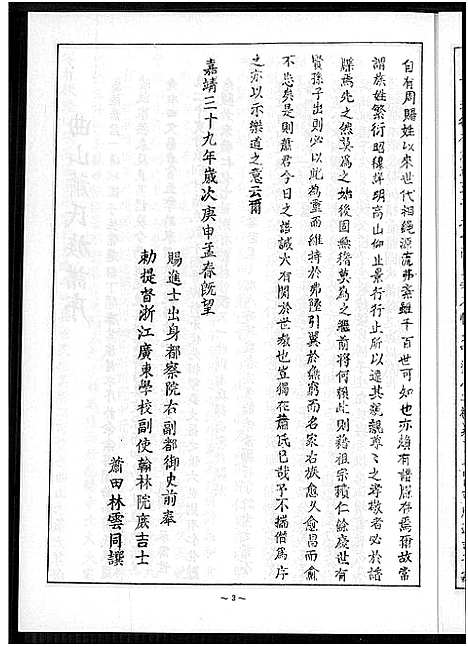 自有周賜姓以來世代相繩源流弗紊雖千百世可知也亦賴有譜牒存焉爾故常
謂族姓繁衍昭穆詳明高山仰止景行行止所以達其親親尊尊之孝敬者必於譜
牒焉先之然莫為之始後固無徵莫為之繼前將何賴此則藉祖宗積仁餘慶世有
賢孫子出則必以此為重而維持於弗墜引翼於無窮而名家右族愈久愈昌而愈
不忽矣是則蕭君今日之譜誠大有関於世教也豈獨在蕭氏已哉予不揣僭為序
之亦以示樂道之意云爾
嘉靖三十九年歲次庚申孟春既望
賜進士出身都察院右副都御史前奉
勅提督浙江廣東學校副使翰林院庶吉士
莆田林雲同譔
~3~